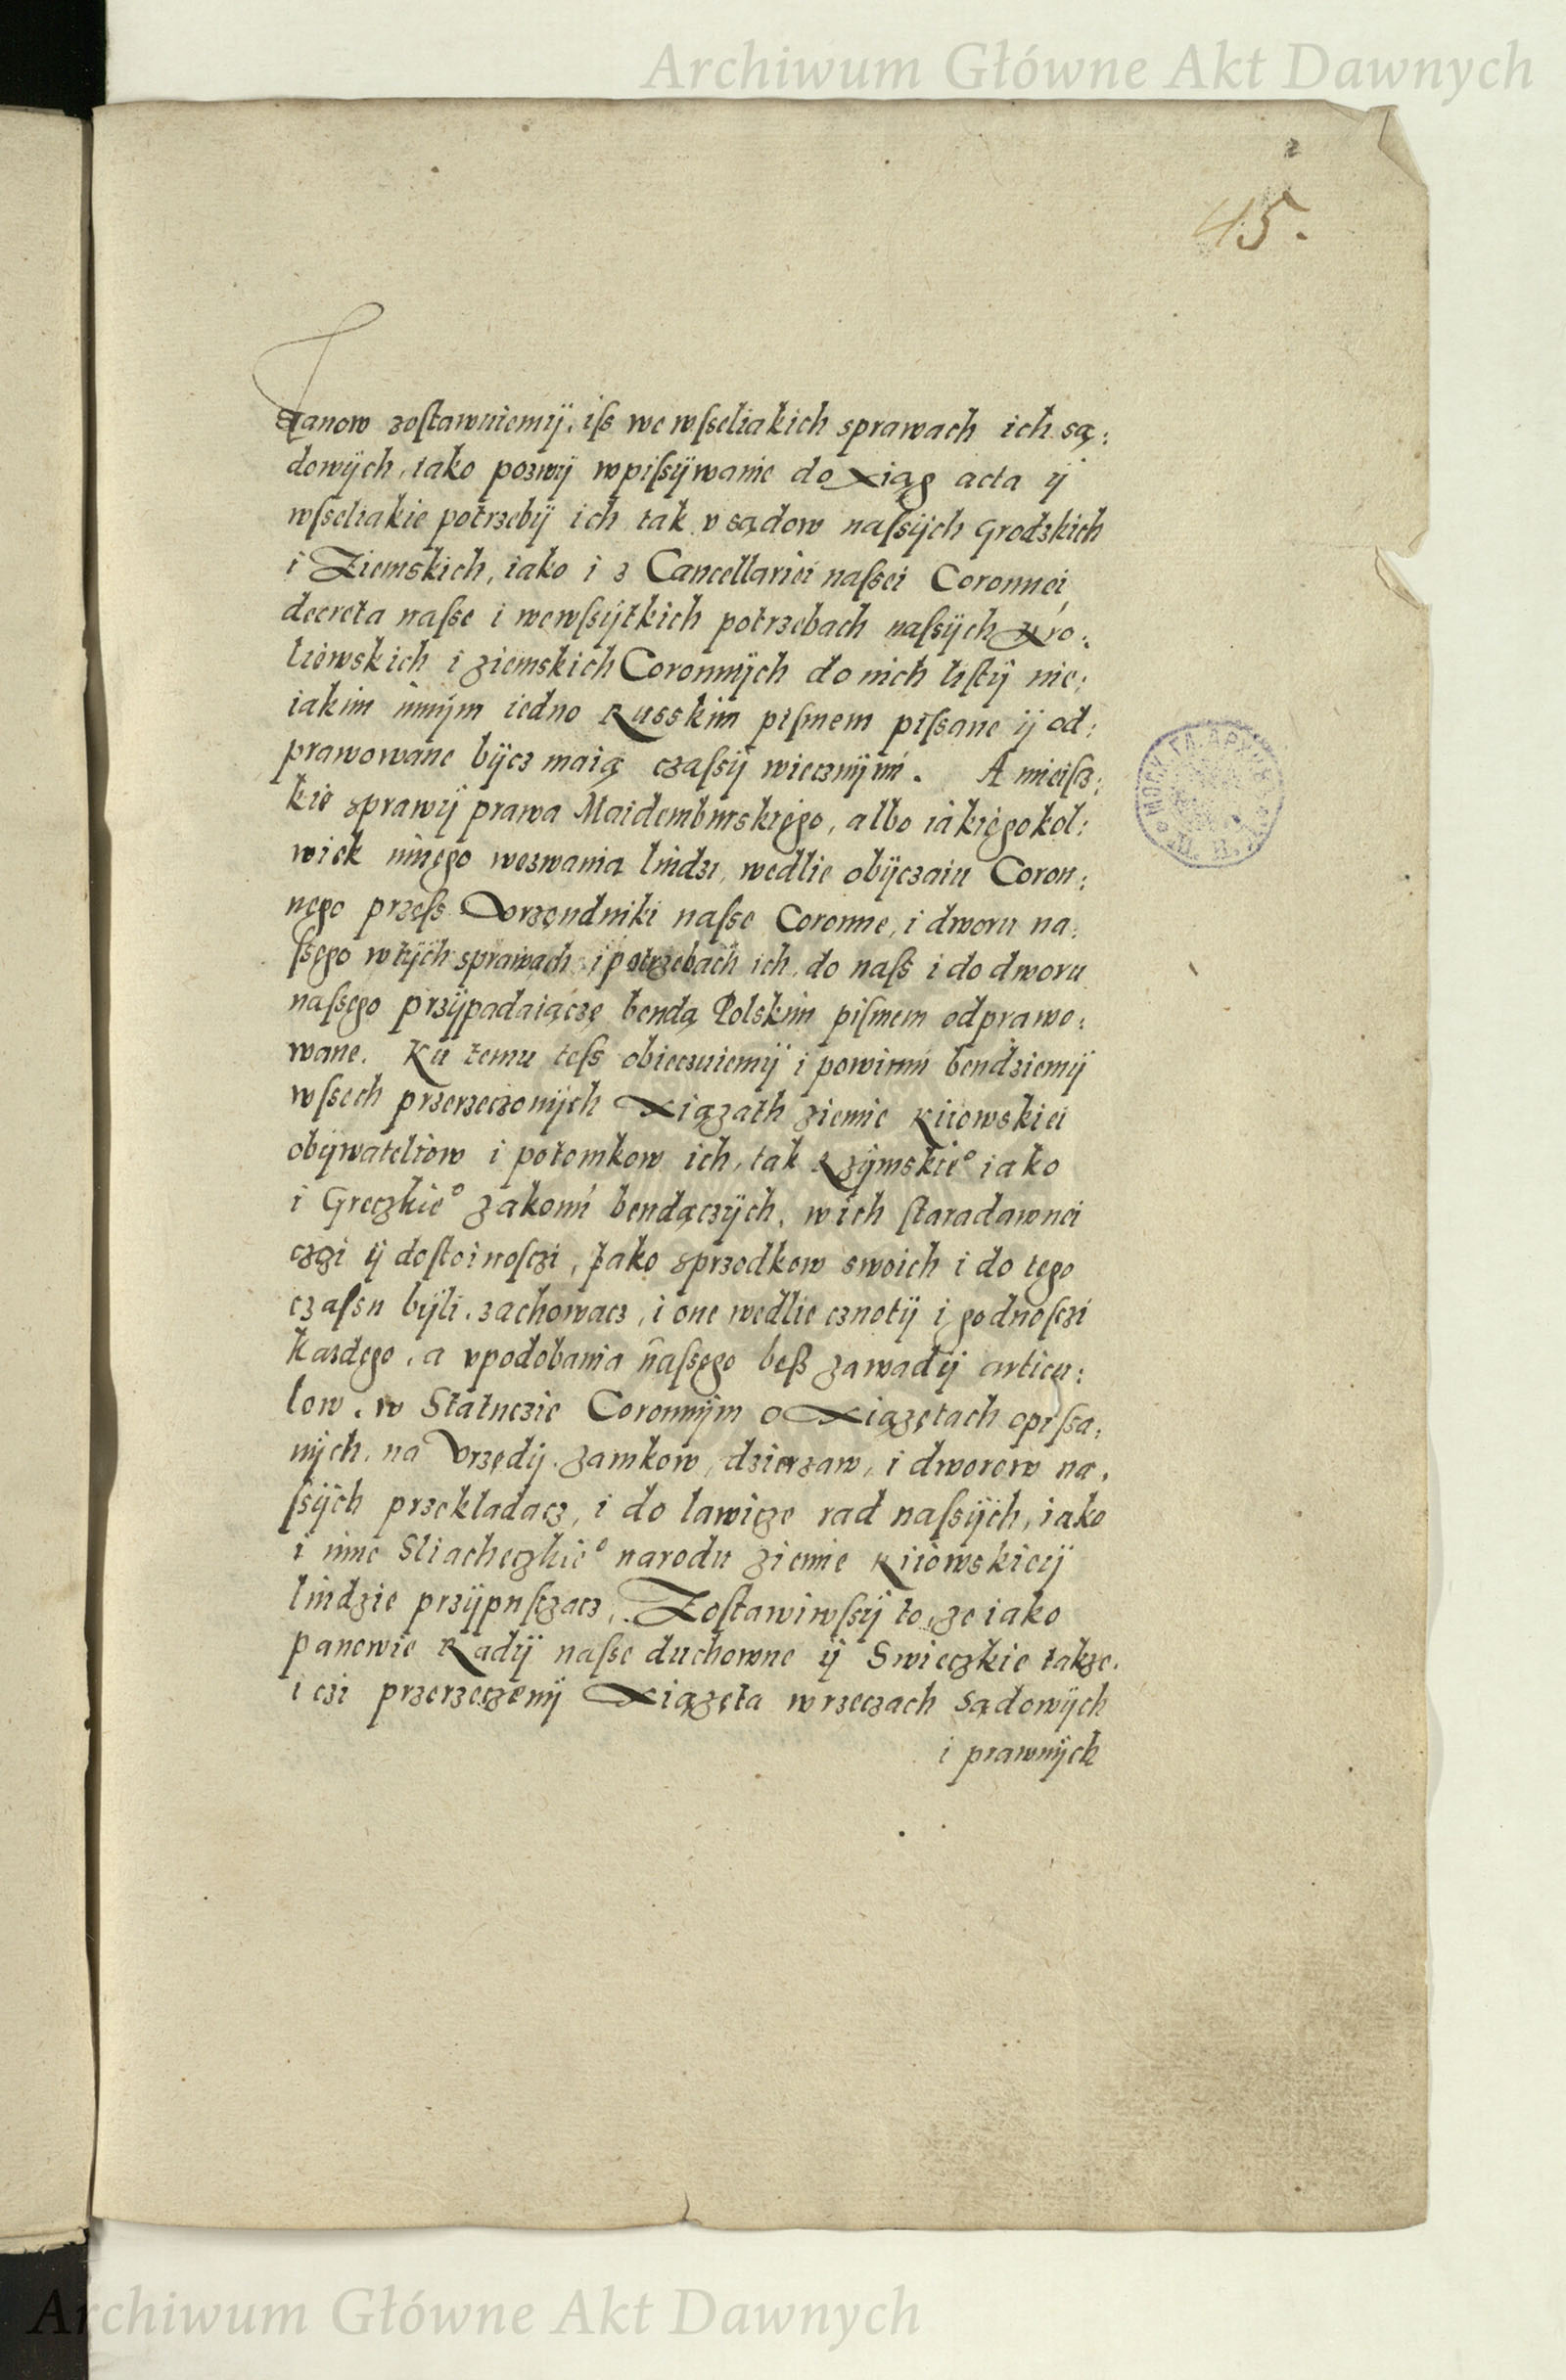 Archiwum Główne Akt Dawnych
45.
stanow zostawuiemÿ, iſs we wſseliakich sprawach ich są:
dowÿch, iako pozwÿ wpiſsÿwanie do Xiąg acta ÿ
wſseliakie potrzebÿ ich tak v sądow naſsÿch Grodzkich
i Ziemskich, iako i z Cancellariei naſsei Coronnei,
decreta naſse i wewſsÿtkich potrzebach naſsÿch Kro:
liewskich i ziemskich Coronnÿch do nich liſtÿ nie:
iakim innÿm iedno Russkim piſmem piſsane ÿ od:
prawowane bÿcz maią czaſsÿ wiecznÿmi. A mieiſsz:
kie sprawÿ prawa Maidemburskięgo, albo iakięgokol:
wiek innęgo wezwania liudzi, wedlie obÿczaiu Coron:
nęgo przeſs Vrzęndniki naſse Coronne, i dworu na:
ſsęgo w tÿch sprawach i potrzebach ich, do naſs i do dworu
naſsęgo przÿpadaiączę bendą Polskim piſmem odprawo:
wane. Ku temu teſs obieczuiemÿ i powinni bendziemÿ
wſsech przerzeczonÿch Xiązath ziemie Kiiowskiei
obÿwateliow i potomkow ich, tak Rzÿmskie° iako
i Greczkie° zakonu bendączÿch, w ich ſtaradawnei
czzi ÿ doſtoinoſczi, Jako zprzodkow swoich i do tęgo
czaſsu bÿli, zachowacz, i one wedlie cznotÿ i godnoſczi
kazdęgo, a vpodobania naſsęgo beſs zawadÿ articu:
low, w Statuczie Coronnÿm o Xiązętach opiſsa:
nÿch, na Vrzędÿ, zamkow, dzierzaw, i dworow na:
ſsÿch przekladacz, i do lawicze rad naſsÿch, iako
i inne Sliacheczkie° narodu ziemie Kiiowskieÿ
liudzie przÿpuſczacz, Zoſtawiwſsÿ to, ze iako
panowie Radÿ naſse duchowne ÿ Swieczkie takze,
i czi przerzeczenÿ Xiązęta w rzeczach sądowÿch
i prawnÿch
Archiwum Główne Akt Dawnych